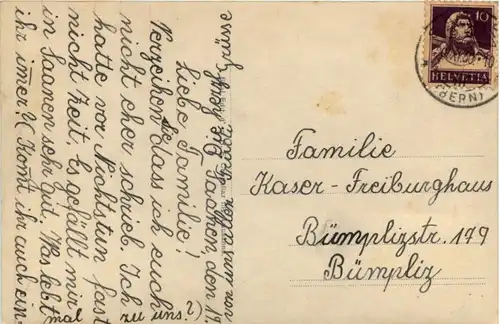 Saanen, den 19.
Liebe Familie!
Verzeihen Sie dass ich euch
nicht eher schrieb. Ich
hatte vor Nichtstun fast
nicht Zeit. Es gefällt mir
in Saanen sehr gut. Was lebt
ihr imer? Komt ihr auch ein-
mal zu uns?
Familie
Kaser-Freiburghaus
Bümplizstr. 179
Bümpliz
10
HELVETIA
(BERN)